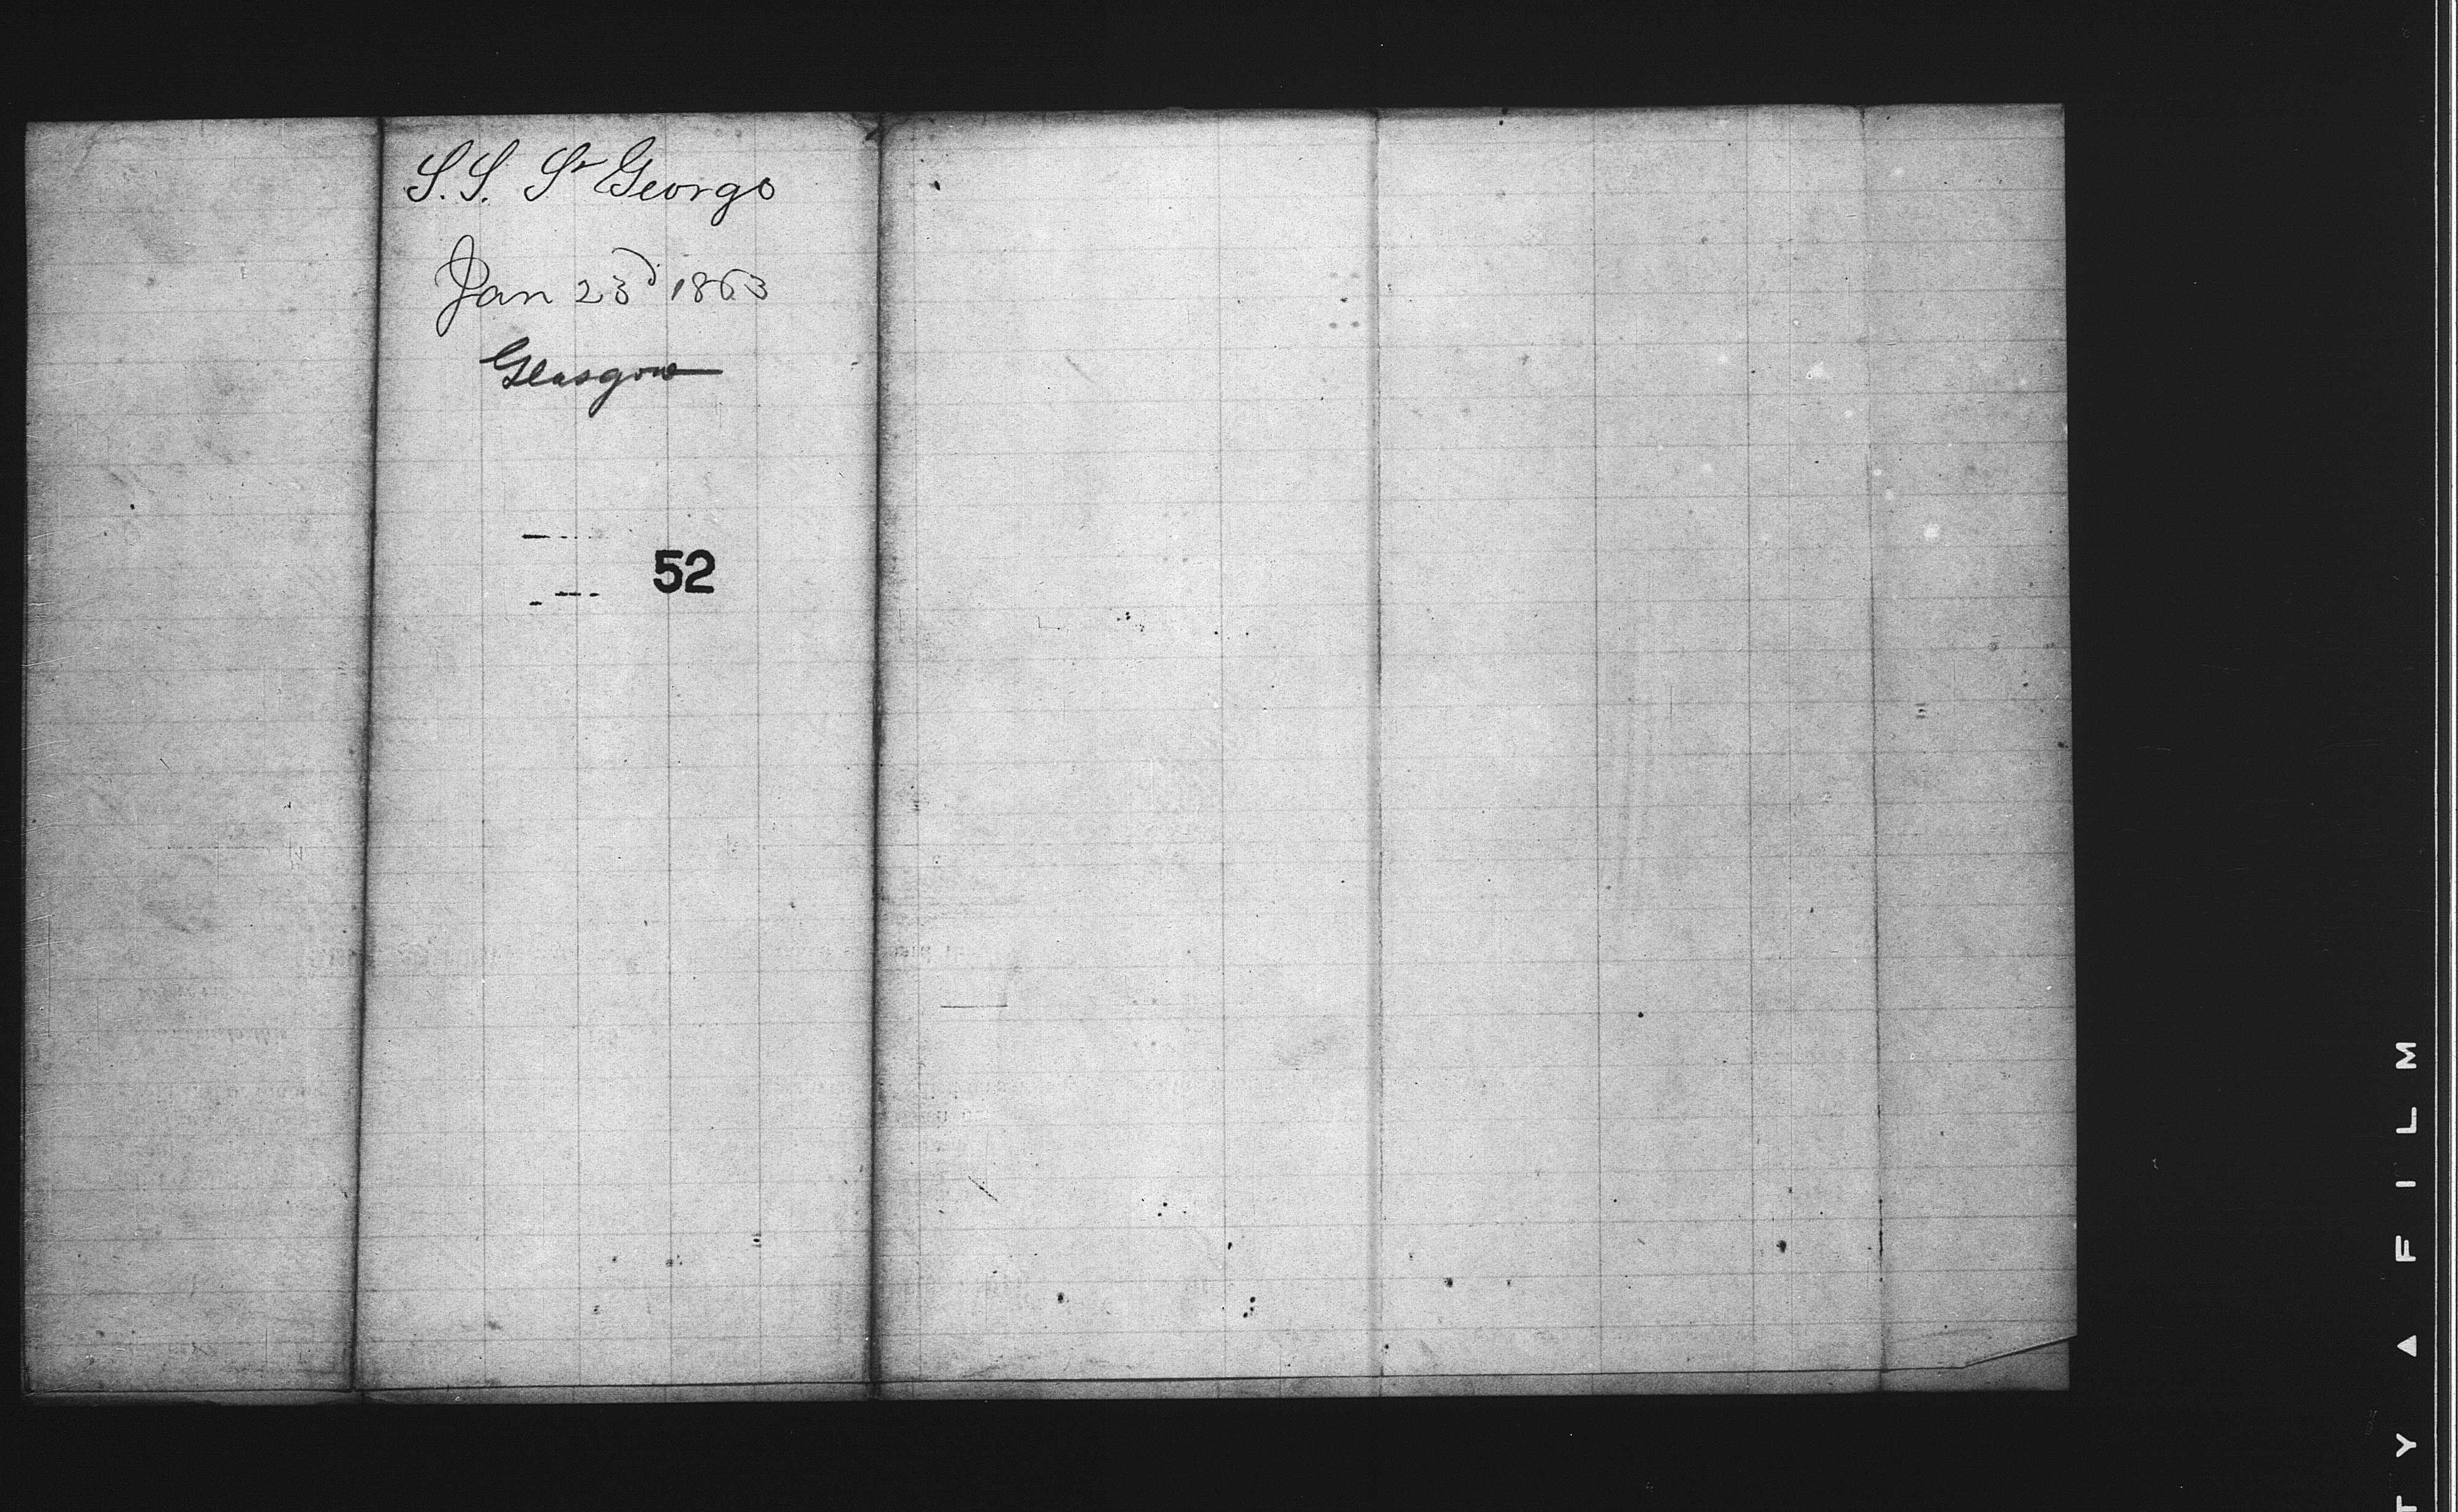 S.S. St George
Jan 23d 1863
Glasgow
52
TY ▲ FILM